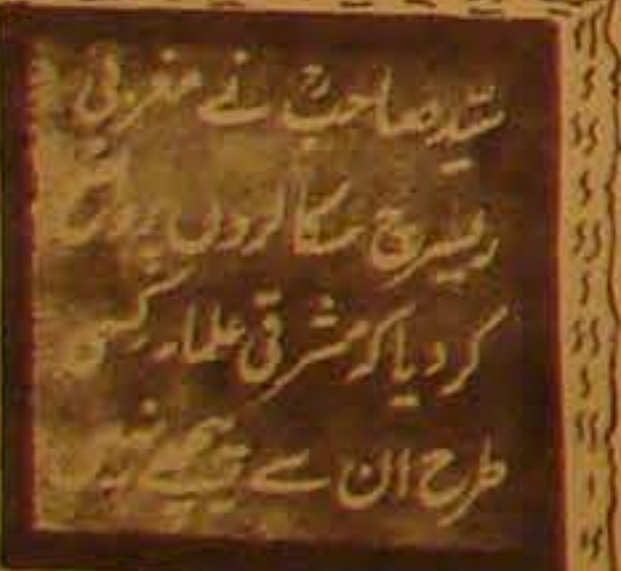 سید صاحبؒ نے مغربی
ریسرچ سکالروں پر واضح
کر دیا کہ مشرقی علماء کسی
طرح ان سے پیچھے نہیں